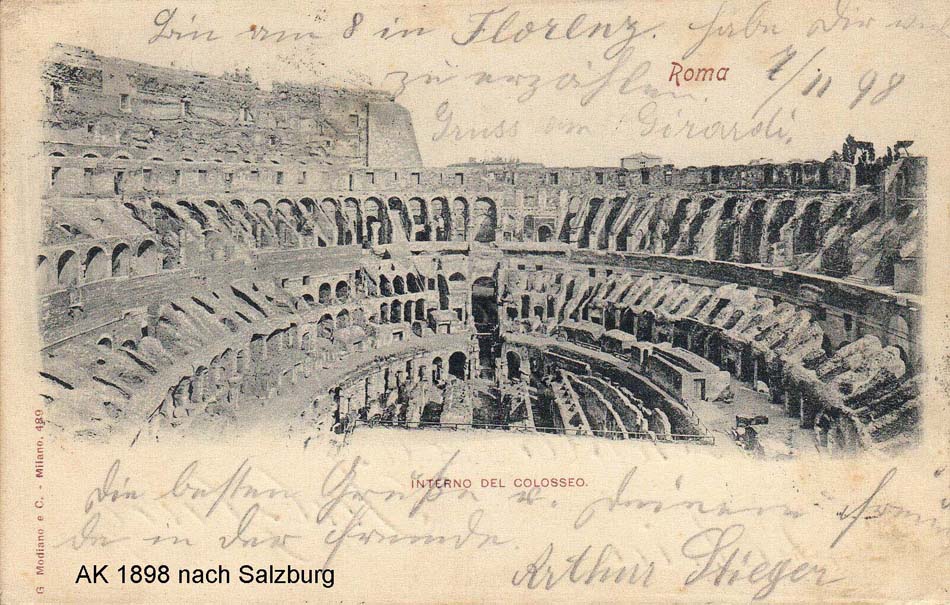 Bin am 8 in Florenz. habe Dir viel
zu erzählen.
Roma
7/11 98
Gruss an Girardi.
G. Modiano e C. - Milano. 489
INTERNO DEL COLOSSEO.
Die besten Grüße v. Deinem Freun
de in der Fremde.
Arthur Stieger
AK 1898 nach Salzburg